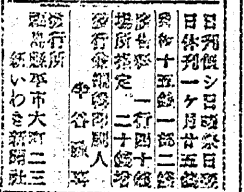 日刊但シ日曜祭日翌
日休刊一ケ月廿五銭
月極十五銭一部二銭
廣告料 一行四十銭
場所指定 二十銭増
發行兼編輯印刷人
發行所
福島縣平市大町二三
新いわき新聞社